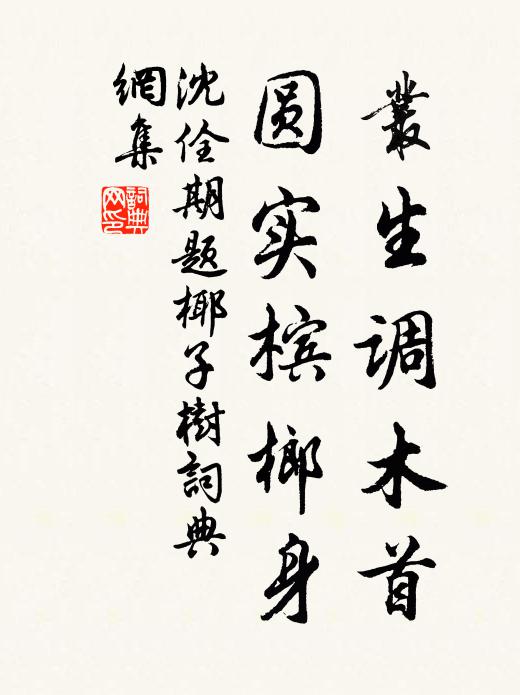 叢生调木首
圆实槟榔身
沈佺期题椰子樹詞典
網集
詞典
网印